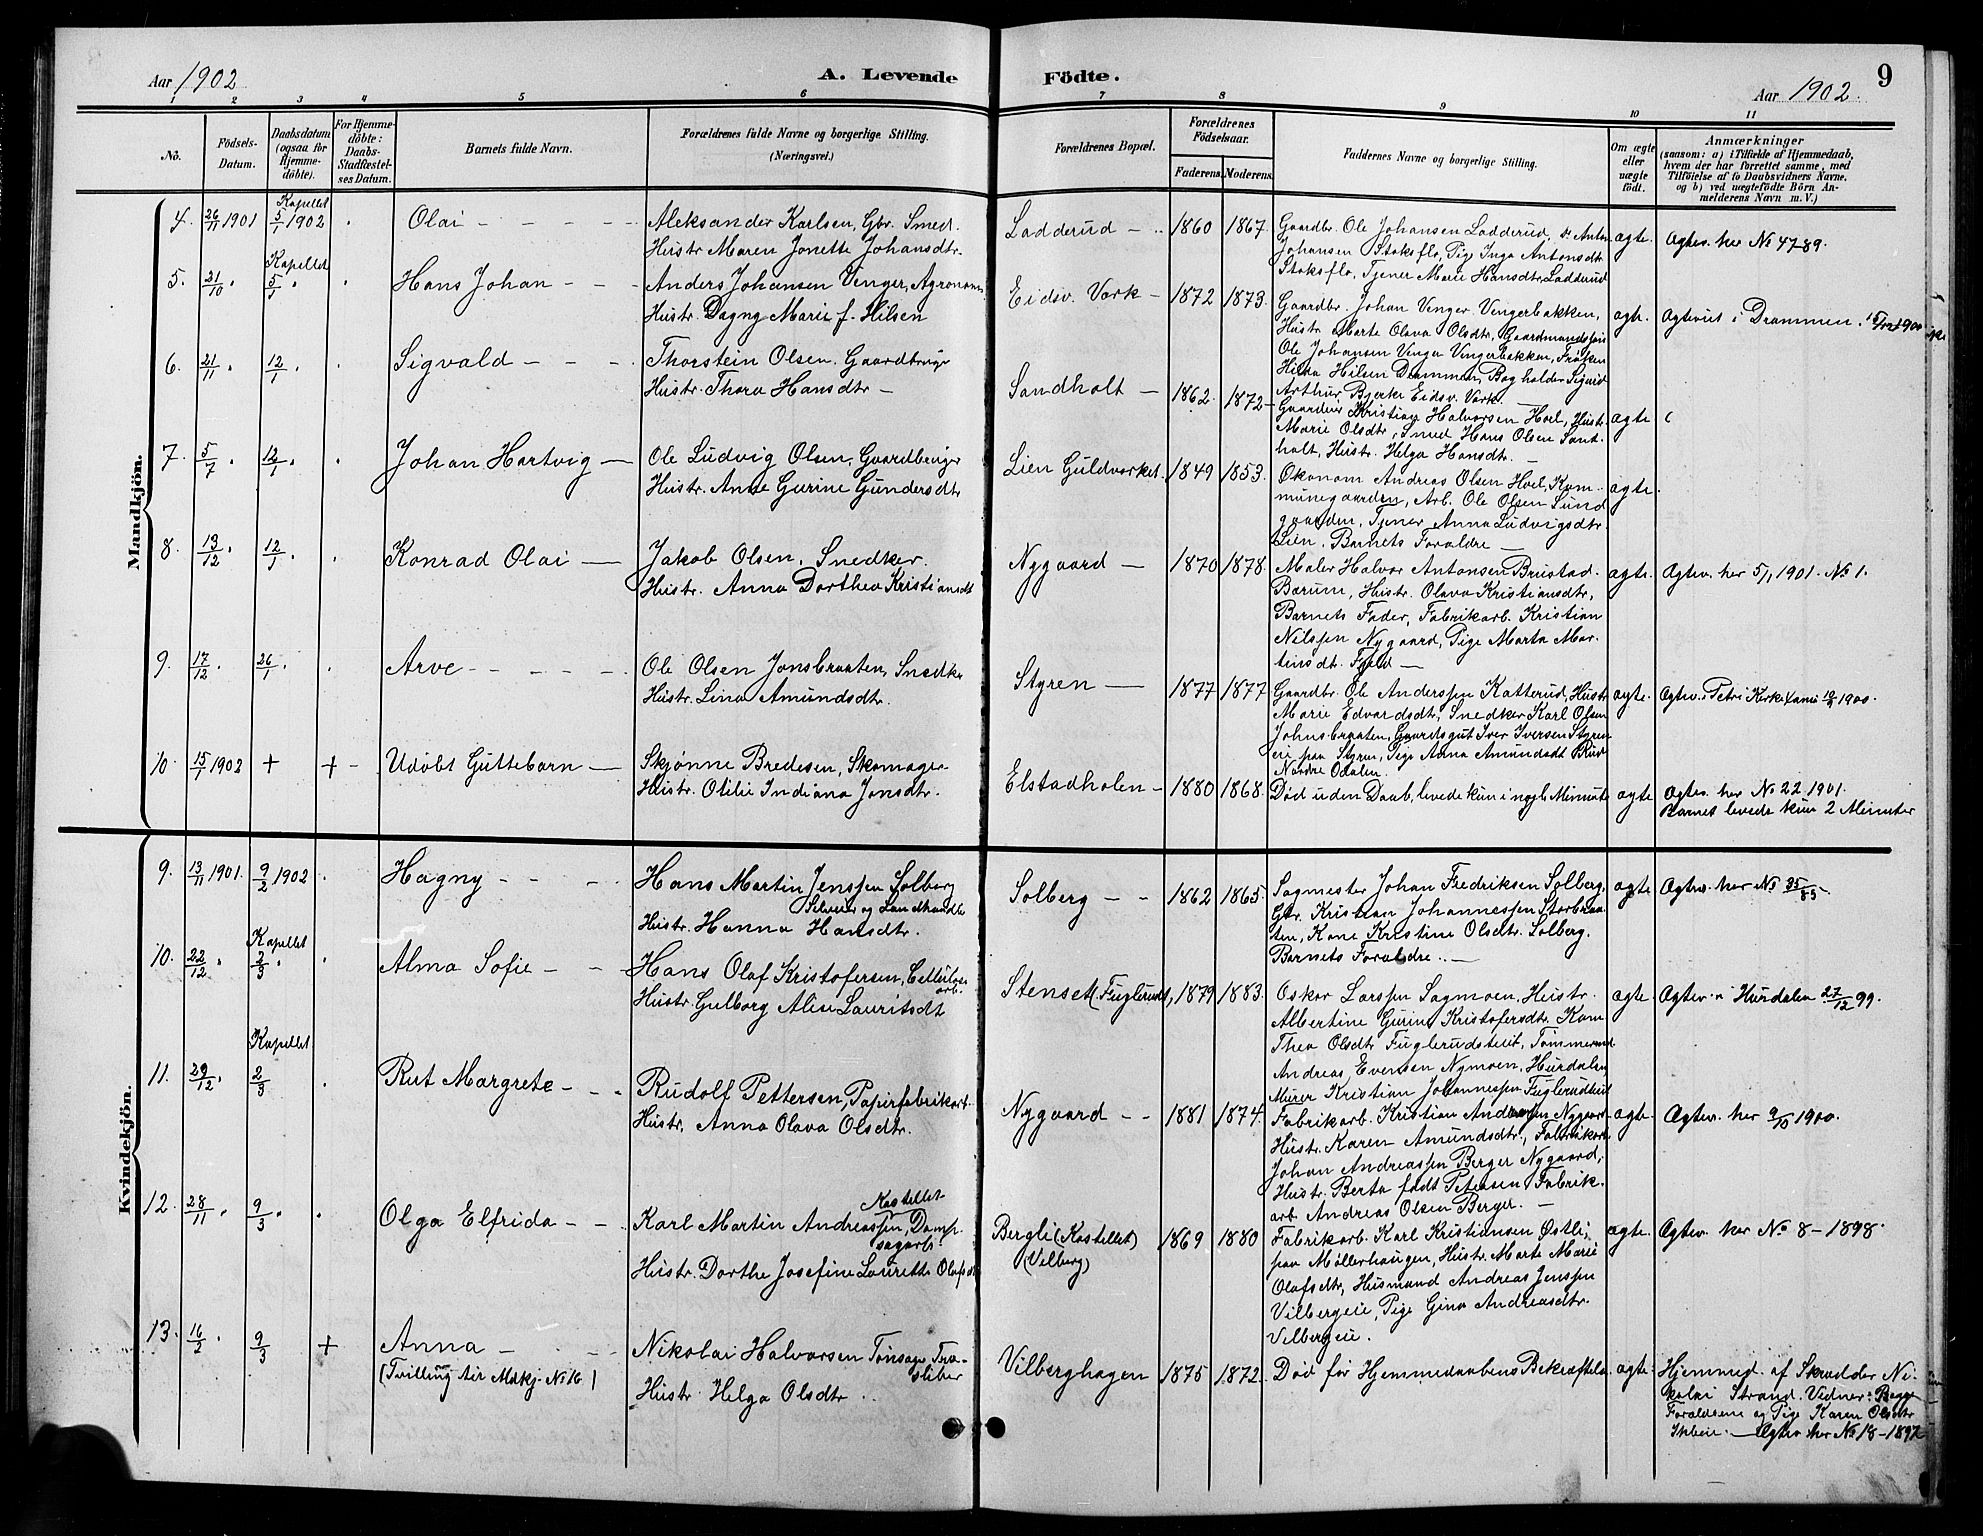 Aar 1902
A. Levende
Födte.
9
Aar 1902.
1 2 3 4 5 6 7 8 9 10 11
No.
Födsels-
Datum.
Daabsdatum
(ogsaa for
Hjemme-
döbte).
For Hjemme-
döbte:
Daabs-
Stadfæstel-
ses Datum.
Barnets fulde Navn.
Forældrenes fulde Navne og borgerlige Stilling.
(Næringsvei.)
Forældrenes Bopæl.
Forældrenes
Födselsaar.
Faderens. Moderens.
Faddernes Navne og borgerlige Stilling.
Om ægte
eller
uægte
födt.
Anmærkninger
(saasom: a) i Tilfælde af Hjemmedaab,
hvem der har forrettet samme, med
Tilföielse af to Daabsvidners Navne,
og b) ved uægtefödte Börn An-
melderens Navn m. V.)
Mandkjön.
4. 26/11 1901 Kapellet 5/1 1902 Olai
Aleksander Karlsen, Gbr. Smed.
Hustr. Maren Jonette Johansdtr.
Ladderud 1860 1867.
Gaardbr. Ole Johansen Ladderud, do Anton
Johansen Stoksflo, Pige Inga Antonsdtr
Stoksflo, Tjener Marie Hansdtr Ladderud
ægte. Ægtev. her No 47-89.
5. 21/10 Kapellet 5/1 Hans Johan
Anders Johansen Venger, Agronom
Hustr. Dagny Marie f. Hilsen
Eidsv. Værk 1872 1873.
Gaardbr. Johan Venger Vengerbakken,
Hustr. Marte Olava Olsdtr, Gaardmandssøn
Ole Johansen Venger Vengerbakken, Frøken
Hilda Hilsen Drammen, Bogholder Sigurd
Arthur Bjerke Eidsv. Værk.
ægte. Ægteviet i Drammen
6. 21/11 12/1 Sigvald
Thorstein Olsen. Gaardbruger
Hustr. Thora Hansdtr
Sandholt 1862. 1872
Gaardbr Kristian Halvorsen Hoel, Hustr.
Marie Olsdtr, Smed Hans Olsen Sant-
holt, Hustr. Helga Hansdtr.
ægte
7. 5/7 12/1 Johan Hartvig
Ole Ludvig Olsen, Gaardbruger
Hustr. Anne Gurine Gundersdtr
Lien Guldværket. 1849 1853.
Økonom Andreas Olsen Hoel, Kom-
munegaarden, Arb. Ole Olsen Sund
gaarden, Tjener Anna Ludvigsdtr.
Lien. Barnets Forældre
ægte.
8. 13/12 12/1 Konrad Olai
Jakob Olsen, Snedker.
Hustr. Anna Dorthea Kristiansdt
Nygaard 1870 1878.
Maler Halvor Antonsen Brustad.
Bærum, Hustr. Olava Kristiansdtr,
Barnets Fader, Fabrikarb. Kristian
Nilssen Nygaard, Pige Marta Mar-
tinsdt.
ægte. Ægtev. her 5/1 1901. No 1.
9. 17/12 26/1 Arve
Ole Olsen Jonsbraaten, Snedker
Hustr. Lina Amundsdtr.
Styren 1877 1877
Gaardbr. Ole Anderssen Katterud, Hustr
Marie Edvardsdtr, Snedker Karl Olsen
Johnsbraaten, Gaardsgut Iver Iversen Styren
eie paa Styren, Pige Anna Amundsdt
Nordre Odalen.
ægte. Ægtev. i Petri Kirke
10. 15/1 1902 + + Udøbt Guttebarn
Skjønne Bredesen, Skomager
Hustr. Otilie Indiana Jonsdtr.
Elstadholen 1880 1868.
Død uden Daab, levede kun i nogle Minuter
ægte Ægtev. her No 22 1901.
Barnet levede kun 2 Minuter
Kvindekjön.
9. 13/11 1901. 9/2 1902 Hagny
Hans Martin Jenssen Solberg
Selveier og Landhandler
Hustr. Hanna Hansdtr.
Solberg 1862 1865.
Sagmester Johan Fredriksen Solberg,
Gbr. Kristian Johannessen Storbraa-
ten, Kone Kristine Olsdtr. Solberg.
Barnets Forældre.
ægte Ægtev. her No 35/85.
10. 22/12 Kapellet 2/3 Alma Sofie
Hans Olaf Kristofersen, Cellulose
arb.
Hustr. Gulborg Alise Lauritsdt
Stenset (Fuglerudt), 1879 1883.
Oskar Larssen Sagmoen, Hustr.
Albertine Gurine Kristofersdtr. Kone
Thea Olsdtr Fuglerudsteiet, Tømmermand
Andreas Evensen Nymoen, Hurdalen,
Murer Kristian Johannessen Fuglerudteiet
ægte Ægtev. i Hurdalen 27/12 99.
11. 29/12 Kapellet 2/3 Rut Margrete
Rudolf Pettersen, Papirfabrikarb.
Hustr. Anna Olava Olsdtr.
Nygaard 1881 1874.
Fabrikarb. Kristian Andreassen Nygaard
Hustr. Karen Amundsdtr., Fabrikarb
Johan Andreassen Berger Nygaard,
Hustr. Berta født Petersen, Fabrik-
arb Andreas Olsen Berger.
ægte. Ægtev. her 9/10 1900.
12. 28/11 9/3 Olga Elfrida
Kastellet
Karl Martin Andreassen, Damp-
sagarb.
Hustr. Dorthe Josefine Laurette Olafsdt
Bergli (Kastellet) 1869 1880
(Vilberg)
Fabrikarb. Karl Kristiansen Østli,
paa Møllerhaugen, Hustr. Marte Marie
Olafsdtr, Husmand Andreas Jenssen
Vilbergeie, Pige Gina Andreasdtr.
Vilbergeie.
ægte. Ægtev. her No 8-1898.
13. 16/2 9/3 + Anna
(Tvilling til Mdkj. No 16)
Nikolai Halvorsen Tønsager Træ-
sliber
Hustr. Helga Olsdtr
Vilberghagen 1875 1872.
Død før Hjemmedaabens Bekræftelse
ægte. Hjemmed. af Skrædder Ni-
kolai Strand. Vidner: Begge
Forældrene og Pige Karen Olsdtr
Ægtev her No 18-1897